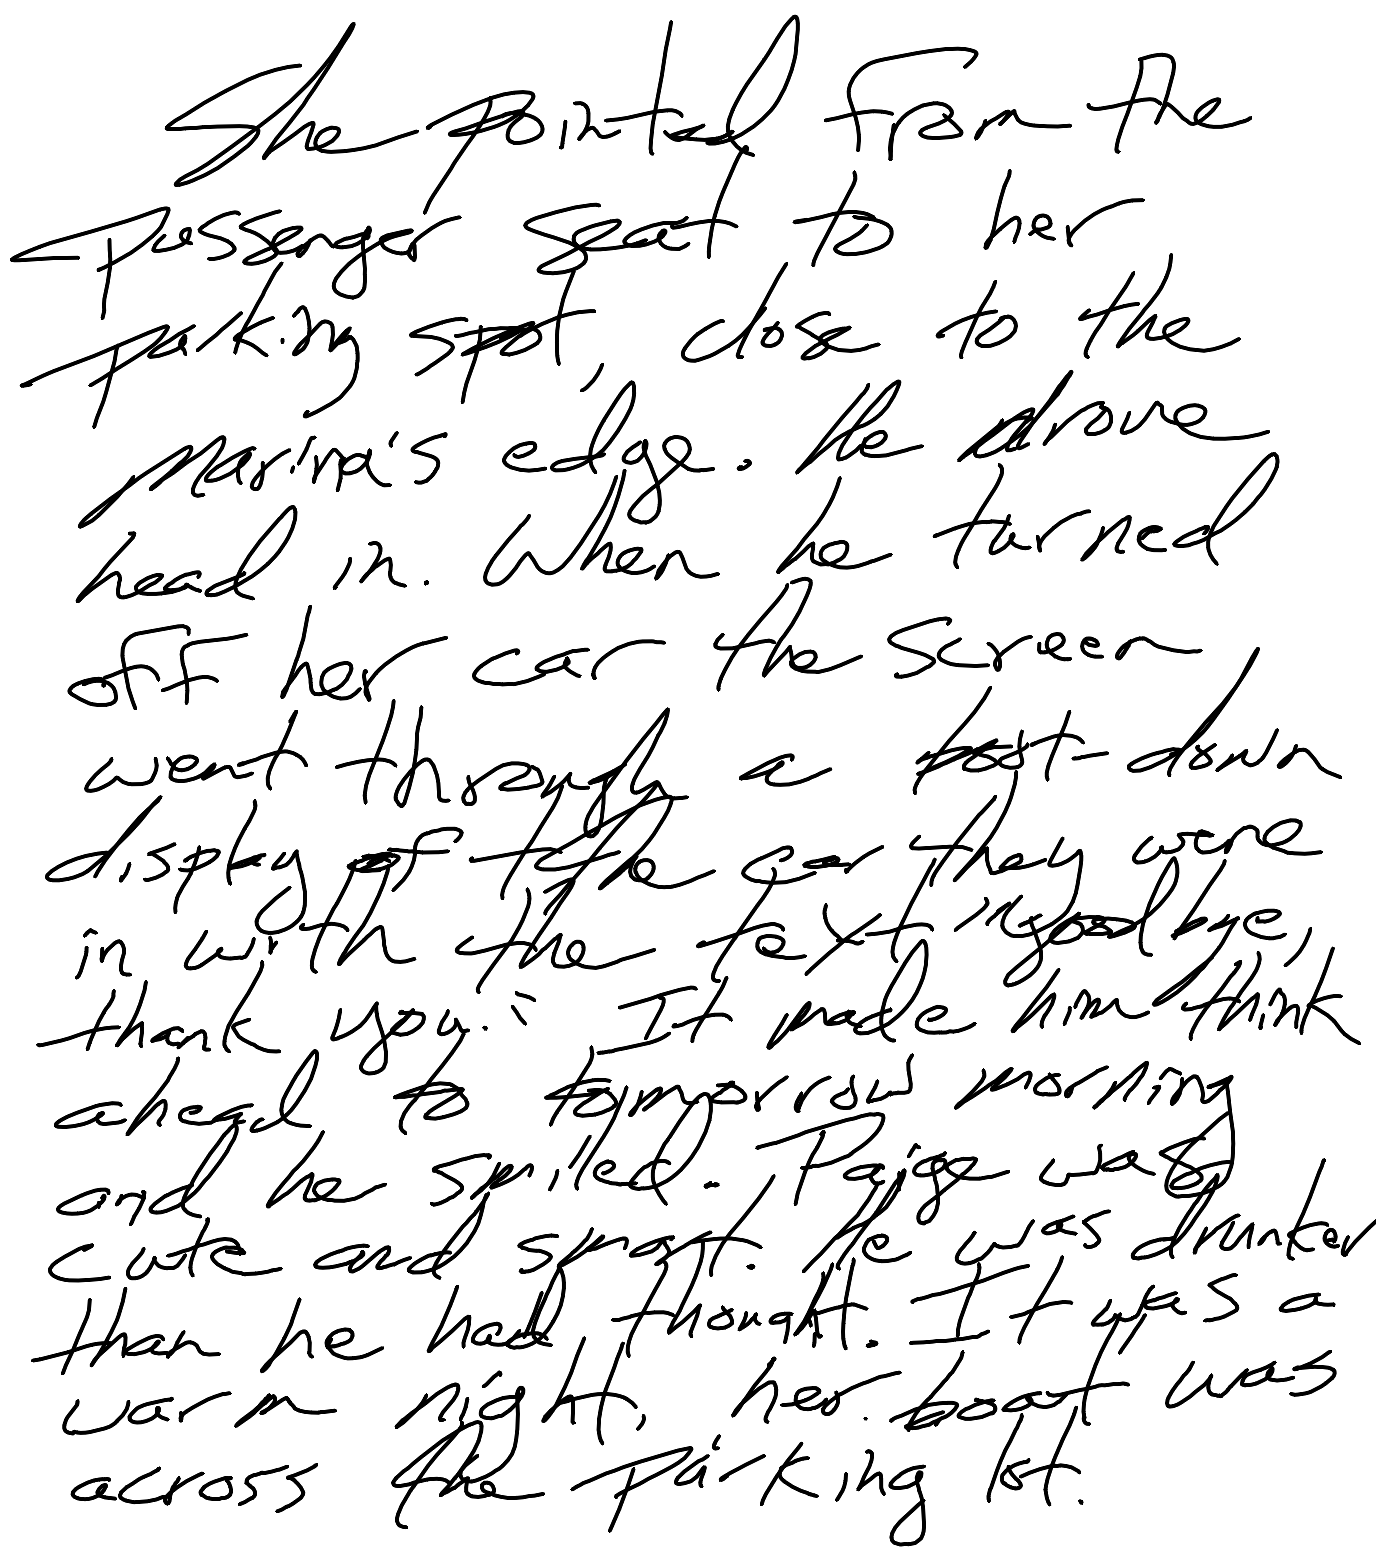 She pointed from the
passenger seat to her
parking spot, close to the
marina's edge. He drove
head in. When he turned
off her car the screen
went through a boot-down
display of the car they were
in with the text "goodbye,
thank you." It made him think
ahead to tomorrow morning
and he smiled. Paige was
cute and smart. He was drunker
than he had thought. It was a
warm night, her boat was
across the parking lot.